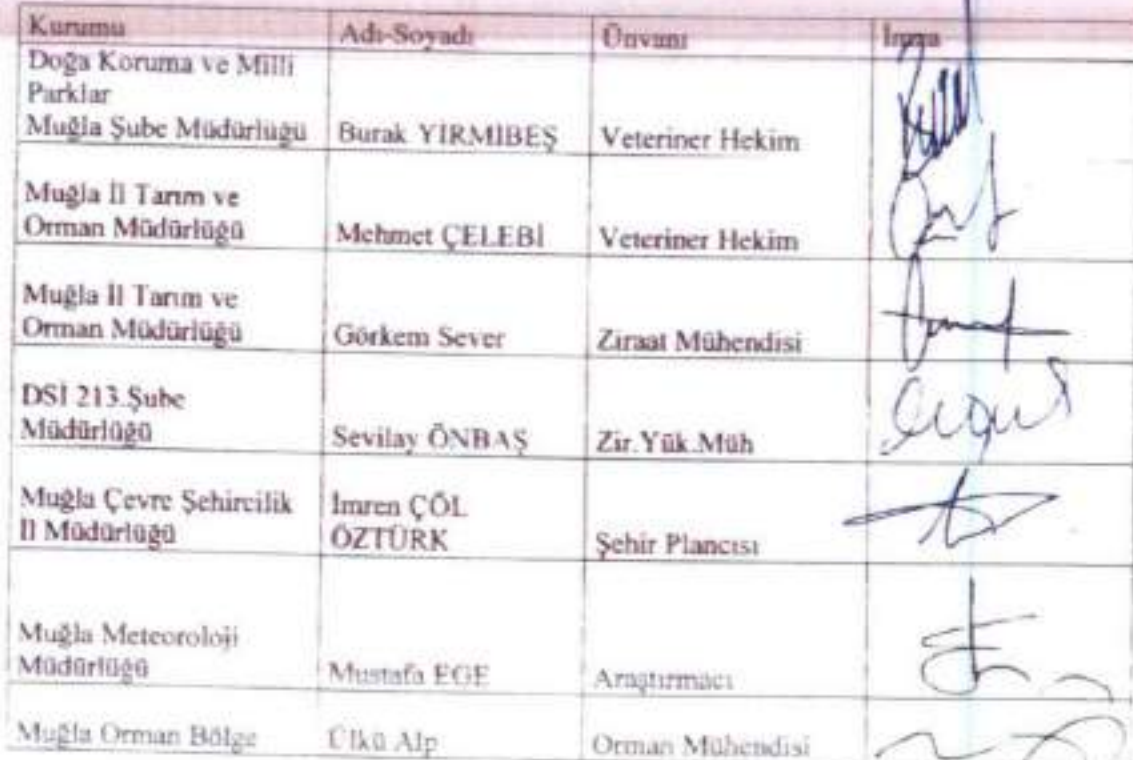 Kurumu Adı-Soyadı Ünvanı İmza
Doğa Koruma ve Milli
Parklar
Muğla Şube Müdürlüğü Burak YİRMİBEŞ Veteriner Hekim
Muğla İl Tarım ve
Orman Müdürlüğü Mehmet ÇELEBİ Veteriner Hekim
Muğla İl Tarım ve
Orman Müdürlüğü Görkem Sever Ziraat Mühendisi
DSİ 213.Şube
Müdürlüğü Sevilay ÖNBAŞ Zir.Yük.Müh
Muğla Çevre Şehircilik İmren ÇÖL
İl Müdürlüğü ÖZTÜRK Şehir Plancısı
Muğla Meteoroloji
Müdürlüğü Mustafa EGE Araştırmacı
Muğla Orman Bölge Ülkü Alp Orman Mühendisi